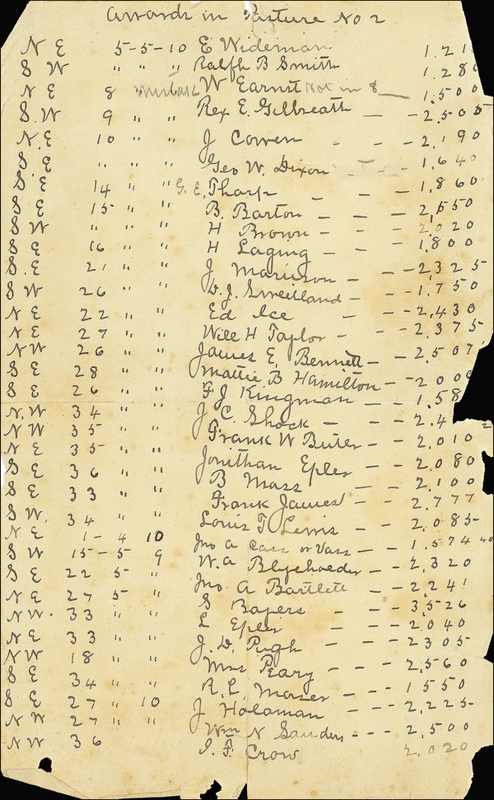 Awards in Pasture No 2
N E 5-5-10 E Wideman 1.21
S W " " " Ralph B Smith 1.280
N E 8 mistake W Earnst Not in 8 1,500
S.W 9 " " Rex E. Gilbreath - - 2,500
N.E 10 " " J Cowen - - 2,190
S.E " " " Geo W. Dixon - - 1,640
S.E 14 " " G.E. Tharp - - 1,860
S E 15 " " B. Barton - - 2,550
S W " " " H Brown - - 2,020
S E 16 " " H Laging - - 1,800
S.E 21 " " J - - 2,325
S W 26 " " D.J. Sweetland - - 1,750
N E 22 " " Ed Ice - - 2,430
N E 27 " " Will H Taylor - - 2,375
N W 26 " " James E. Bennett - 2,507
S E 28 " " Mattie B Hamilton - 2,00
S E 26 " " F J Kingman - - 1,58
N.W 34 " " J. C. Shock - - 2,4
N W 35 " " Frank W Butler - - 2,010
N E 35 " " Jonithan Epler - - 2,080
S E 36 " " B Mass - - 2,100
S E 33 " " Frank James - - 2,777
S W. 34 " " Louis T Lewis - - 2,085
N E 1-4 10 Jno A Cass or Vass - - 1,574 40
S W 15-5 9 W.a - - 2,320
S E 22 5- " Jno A Bartlett - - 2,241
N E 27 5 " S Bayers - - 3,526
N W. 33 " L Epler - - 2,040
N E 33 " J. D. Pugh - - 2305
N W 18 " Mrs Peary - - 2,560
S E 34 " R. L. - - 1550
S E 27 " 10 J Holaman - - - 2,225
N W 27 " " Wm N Sanders - - - 2,500
N W 36 J. F. Crow 2,020